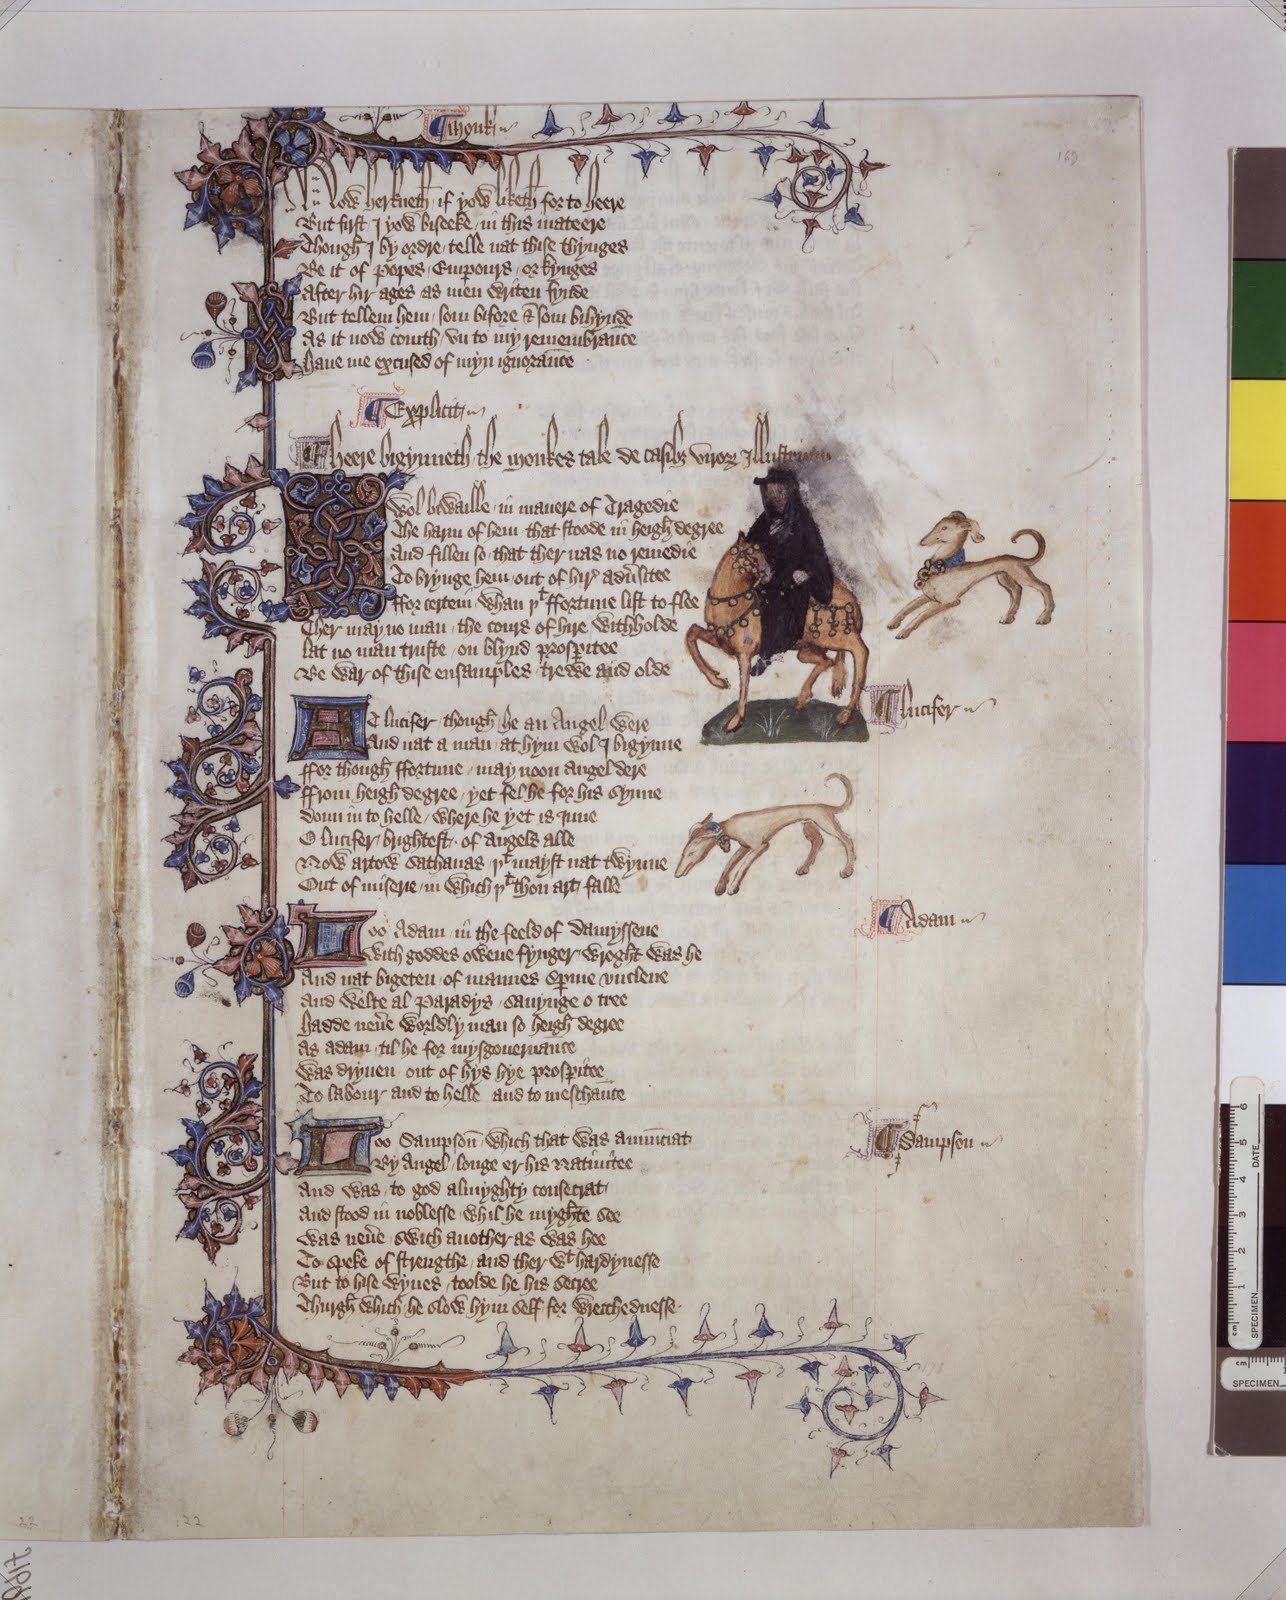 Monk
169
Now herkneth if yow liketh for to heere
But first I yow biseeke in this mateere
Though I by ordre telle nat thise thynges
Be it of Popes Emperours or kynges
After hir ages as men writen fynde
But tellem hem som bifore & som bihynde
As it now comth vn to my remembrance
Haue me excused of myn ignorance
Explicit
Heere bigynneth the Monkes tale de casibus virorum Illustrium
Wol biwaille in manere of Tragedie
The harm of hem that stoode in heigh degree
And fillen so that ther nas no remedie
To brynge hem out of hir aduersitee
ffor certein whan þt ffortune list to flee
Ther may no man the cours of hire withholde
Lat no man truste on blynd prosperitee
Be war of thise ensamples trewe and olde
At lucifer though he an Angel were
And nat a man at hym wol I bigynne
Lucifer
ffor though ffortune may noon Angel dere
ffrom heigh degree yet fel he for his synne
Doun in to helle where he yet is Inne
O lucifer brightest of Angels alle
Now artow Sathanas þt mayst nat twynne
Out of miserie in which þt thou art falle
Loo Adam in the feeld of Damyssene
Adam
With goddes owene fynger wroght was he
And nat bigeten of mannes sperme vnclene
And welte al Paradys sauynge o tree
Hadde neuere worldly man so heigh degree
As Adam til he for mysgouernance
Was dryuen out of hys hye prosperitee
To labour and to helle and to meschance
Loo Sampson which that was annunciat
Sampson
By Angel longe er his natiuitee
And was to god almyghty consecrat
And stood in noblesse whil he myghte see
Was neuere swich another as was hee
To speke of strengthe and ther wt hardynesse
But to hise wyues toolde he his secree
Thurgh which he slow hym self for wrecchednesse
22
22
cm 1 2 3 4 5 6
SPECIMEN DATE
cm
SPECIMEN